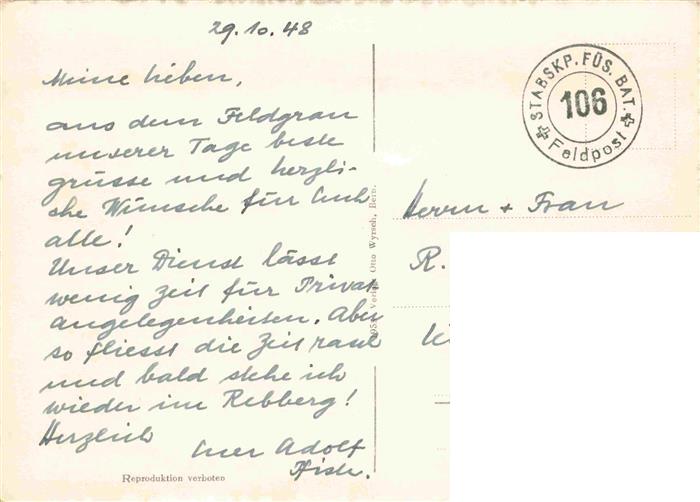 29.10.48
Meine Lieben,
aus dem Feldgrau
unserer Tage beste
grüsse und herzli-
che Wünsche für Euch
alle!
Unser Dienst lässt
wenig Zeit für Privat
angelegenheiten. Aber
so fliesst die Zeit rasch
und bald stehe ich
wieder im Rebberg!
Herzlich
Euer Adolf
Reproduktion verboten
Verlag Otto Wyrsch, Bern.
STABSKP. FÜS. BAT.
106
Feldpost
Herrn + Frau
R.